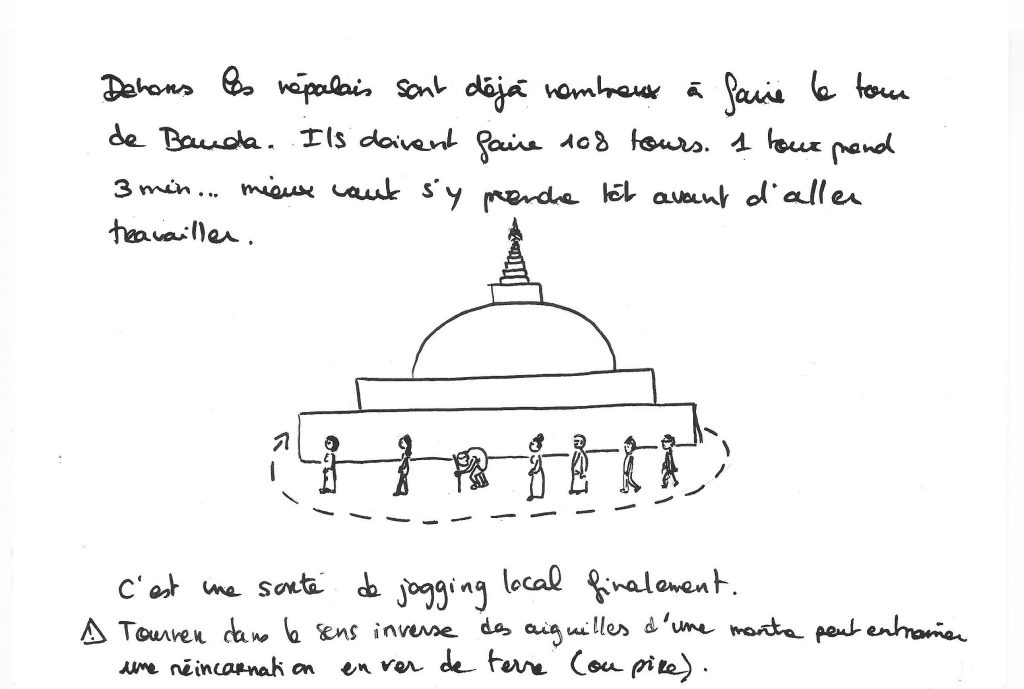 Dehors les népalais sont déjà nombreux à faire le tour
de Bauda. Ils doivent faire 108 tours. 1 tour prend
3 min... mieux vaut s'y prendre tôt avant d'aller
travailler.
C'est une sorte de jogging local finalement.
⚠ Tourner dans le sens inverse des aiguilles d'une montre peut entrainer
une réincarnation en ver de terre (ou pire).